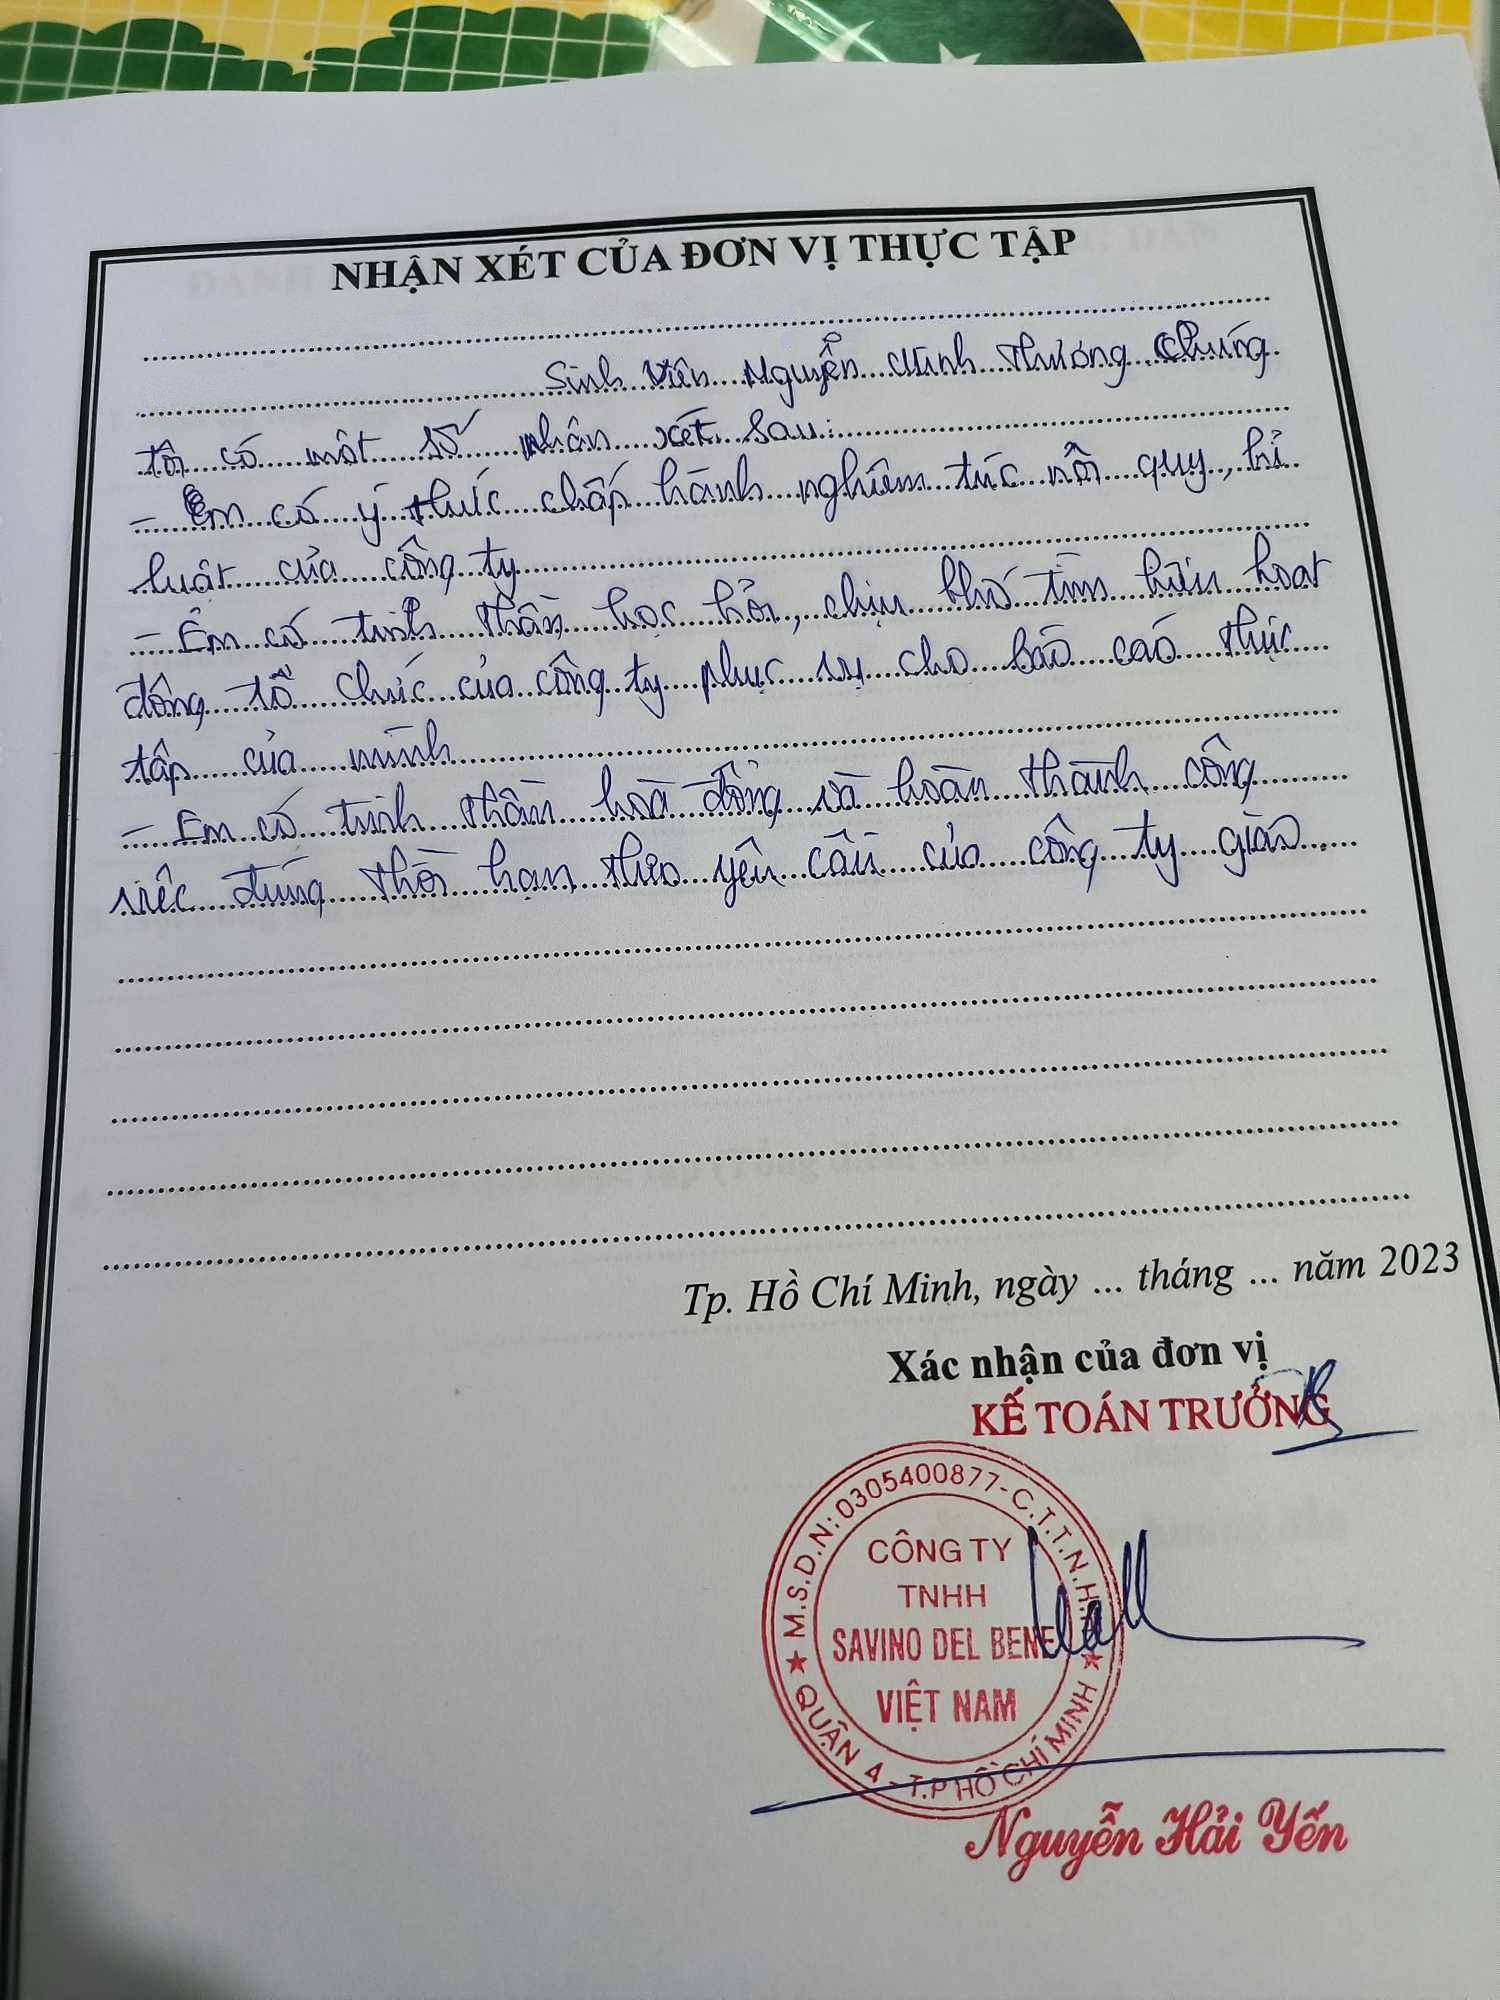 NHẬN XÉT CỦA ĐƠN VỊ THỰC TẬP
Sinh Viên Nguyễn Minh Thương Chúng
tôi có một số nhận xét sau:
- Em có ý thức chấp hành nghiêm túc nội quy, kỉ
luật của công ty
- Em có tinh thần học hỏi, chịu khó tìm hiểu hoạt
động tổ chức của công ty phục vụ cho báo cáo thực
tập của mình
- Em có tinh thần hoà đồng và hoàn thành công
việc đúng thời hạn theo yêu cầu của công ty giao
Tp. Hồ Chí Minh, ngày ... tháng ... năm 2023
Xác nhận của đơn vị
KẾ TOÁN TRƯỞNG
M.S.D.N: 0305400877-C.T.T.N.H.H
CÔNG TY
TNHH
SAVINO DEL BENE
VIỆT NAM
QUẬN 4 - T.P HỒ CHÍ MINH
Nguyễn Hải Yến